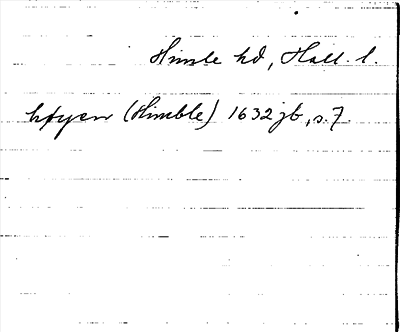 Himle hd, Hall. l.
(Himble) 1632 jb, s. 7.